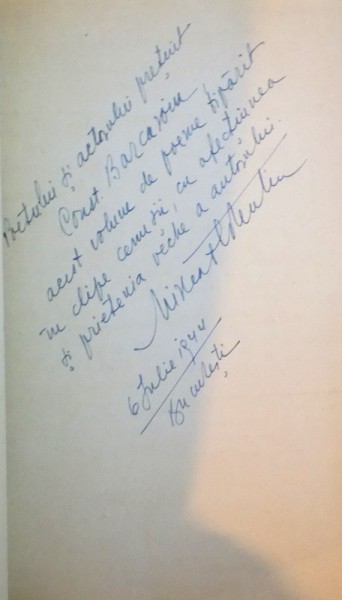 Poetului și actorului prețuit
Const. Barcaroiu
acest volum de poeme tipărit
în clipe cenușii, cu afecțiunea
și prietenia veche a autorului.
6 Iulie 1944
București